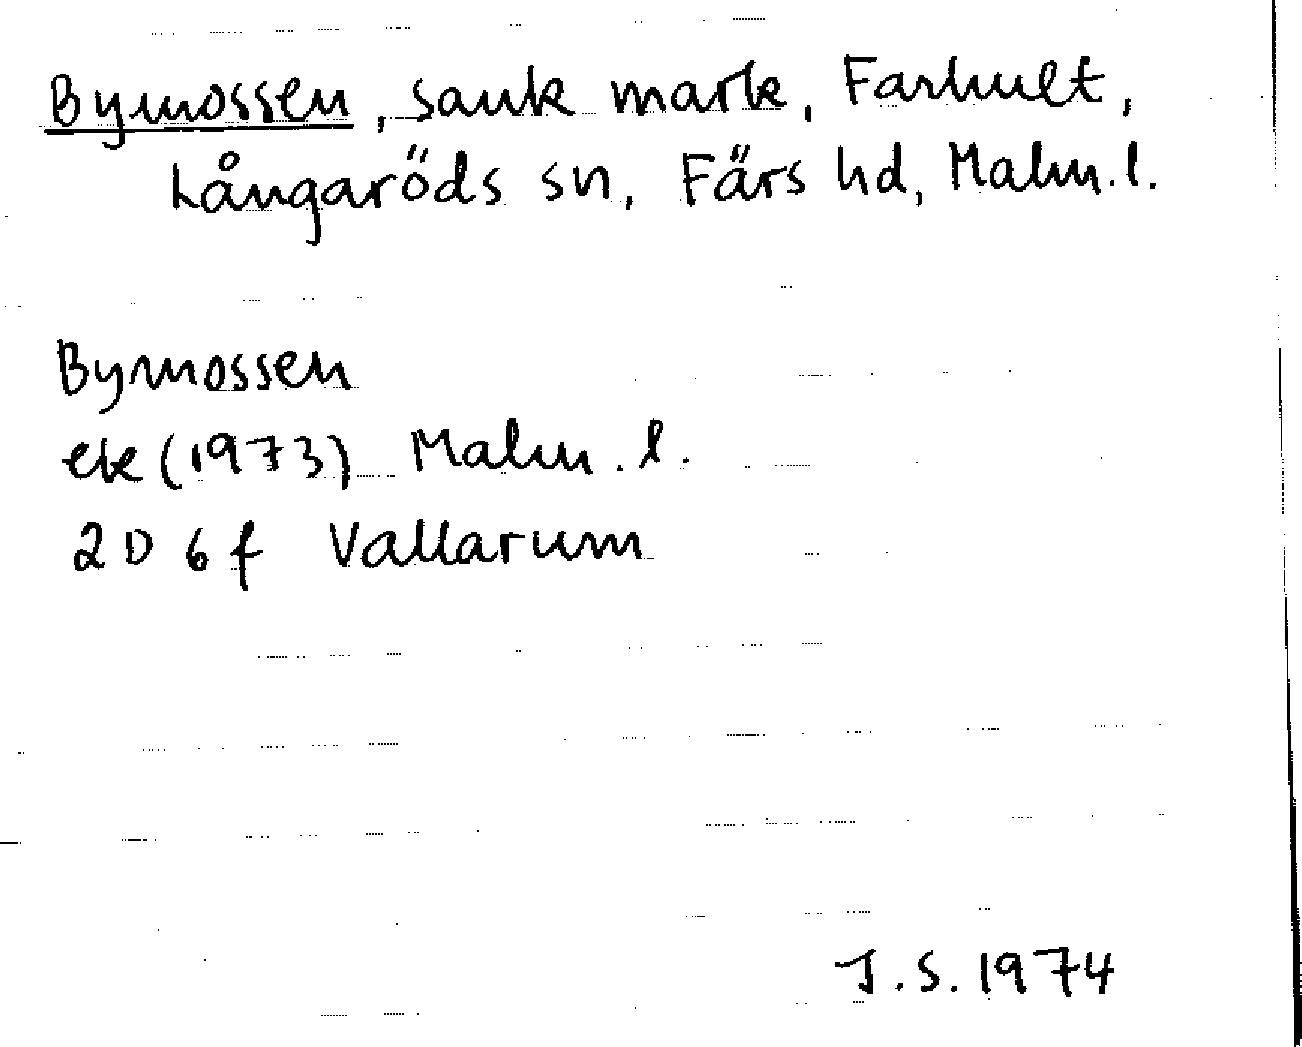 Bymossen, sank mark, Farhult,
Långaröds sn, Färs hd, Malm.l.
Bymossen
ek (1973) Malm.l.
2D 6f Vallarum
J.S. 1974